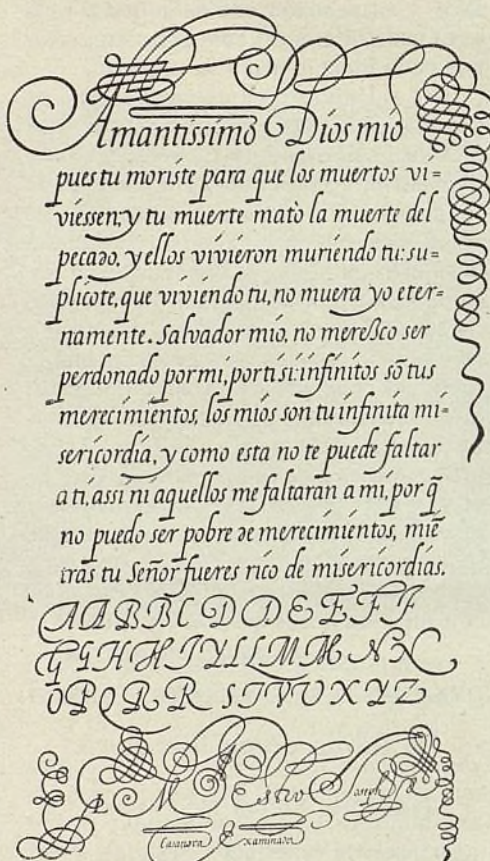 Amantissimo Dios mio
pues tu moriste para que los muertos vi=
viessen; y tu muerte matò la muerte del
pecado, y ellos vivieron muriendo tu: su=
plicote, que viviendo tu, no muera yo eter=
namente. Salvador mio, no mereßco ser
perdonado por mi, por ti si: infinitos sõ tus
merecimientos, los mios son tu infinita mi=
sericordia, y como esta no te puede faltar
a ti, assi ni aquellos me faltaran a mi, por q̃
no puedo ser pobre de merecimientos, miẽ
tras tu Señor fueres rico de misericordias.
A A B B C D D E E F F
G G H H I Y L L M M N N
O P Q R R S T V U X Y Z
El M Estro Joseph d
Casanova Examinador